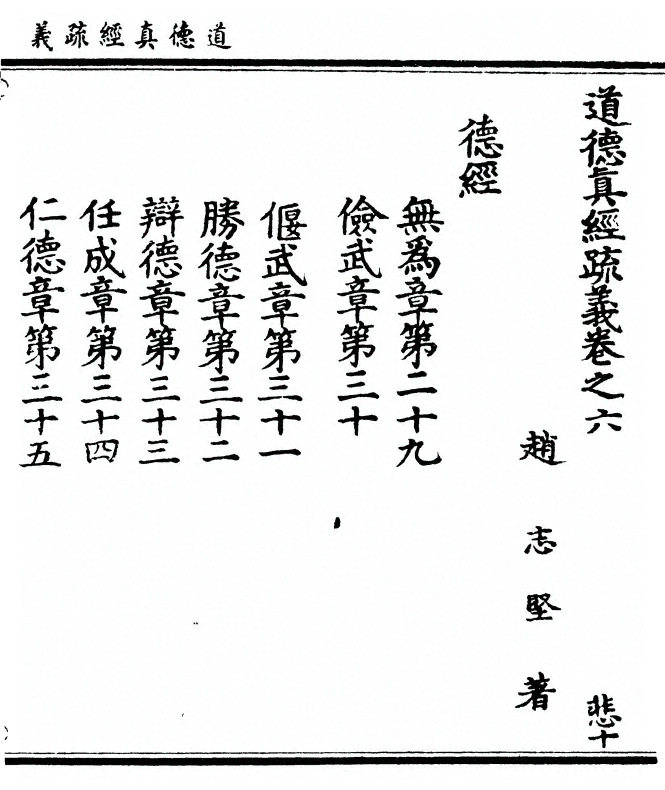 道德真經疏義
道德眞經疏義卷之六
悲十
趙志堅著
德經
無爲章第二十九
儉武章第三十
偃武章第三十一
勝德章第三十二
辯德章第三十三
任成章第三十四
仁德章第三十五